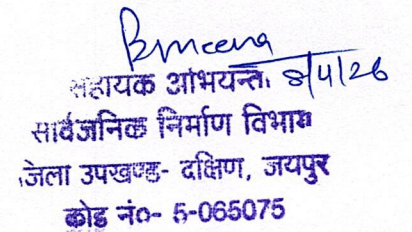 Bmeena
8/4/26
सहायक अभियन्ता
सार्वजनिक निर्माण विभाग
जिला उपखण्ड- दक्षिण, जयपुर
कोड नं०- 5-065075